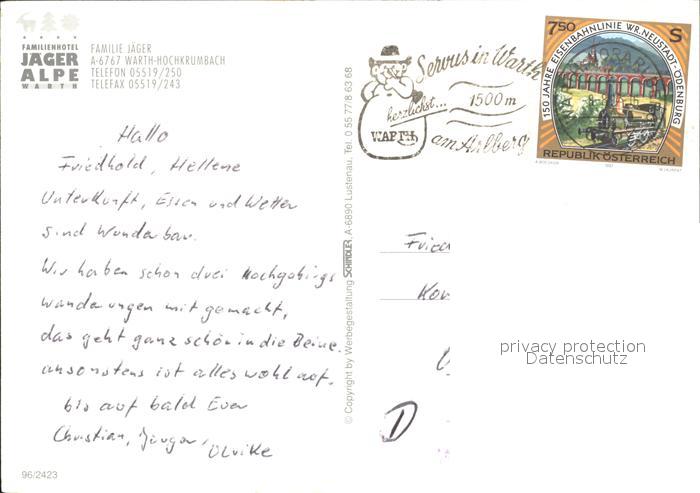 FAMILIENHOTEL
JÄGER
ALPE
WARTH
FAMILIE JÄGER
A-6767 WARTH-HOCHKRUMBACH
TELEFON 05519/250
TELEFAX 05519/243
Hallo
Friedhold, Hellene
Unterkunft, Essen und Wetter
sind Wunderbar.
Wir haben schon drei Hochgebirgs
wanderungen mit gemacht,
das geht ganz schön in die Beine.
ansonstens ist alles wohl auf.
bis auf bald Euer
Christian, Jürgen, Ulrike
96/2423
© Copyright by Werbegestaltung SCHINDLER A-6890 Lustenau, Tel. 0 55 77/8 63 68
Servus in Warth
herzlichst...
1500 m
WARTH
am Arlberg
7.50 S
150 JAHRE EISENBAHNLINIE WR. NEUSTADT - ÖDENBURG
REPUBLIK ÖSTERREICH
1997
D
privacy protection
Datenschutz